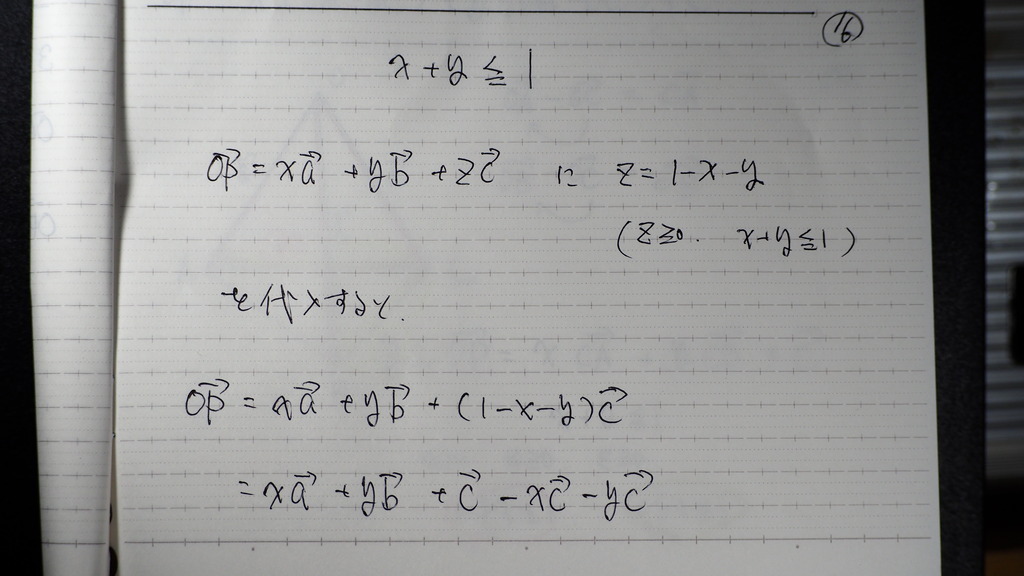 ⑯
x + y ≦ 1
OP⃗ = xa⃗ + yb⃗ + zc⃗ に z = 1-x-y
(z≧0. x+y≦1)
を代入すると.
OP⃗ = xa⃗ + yb⃗ + (1-x-y)c⃗
= xa⃗ + yb⃗ + c⃗ - xc⃗ - yc⃗